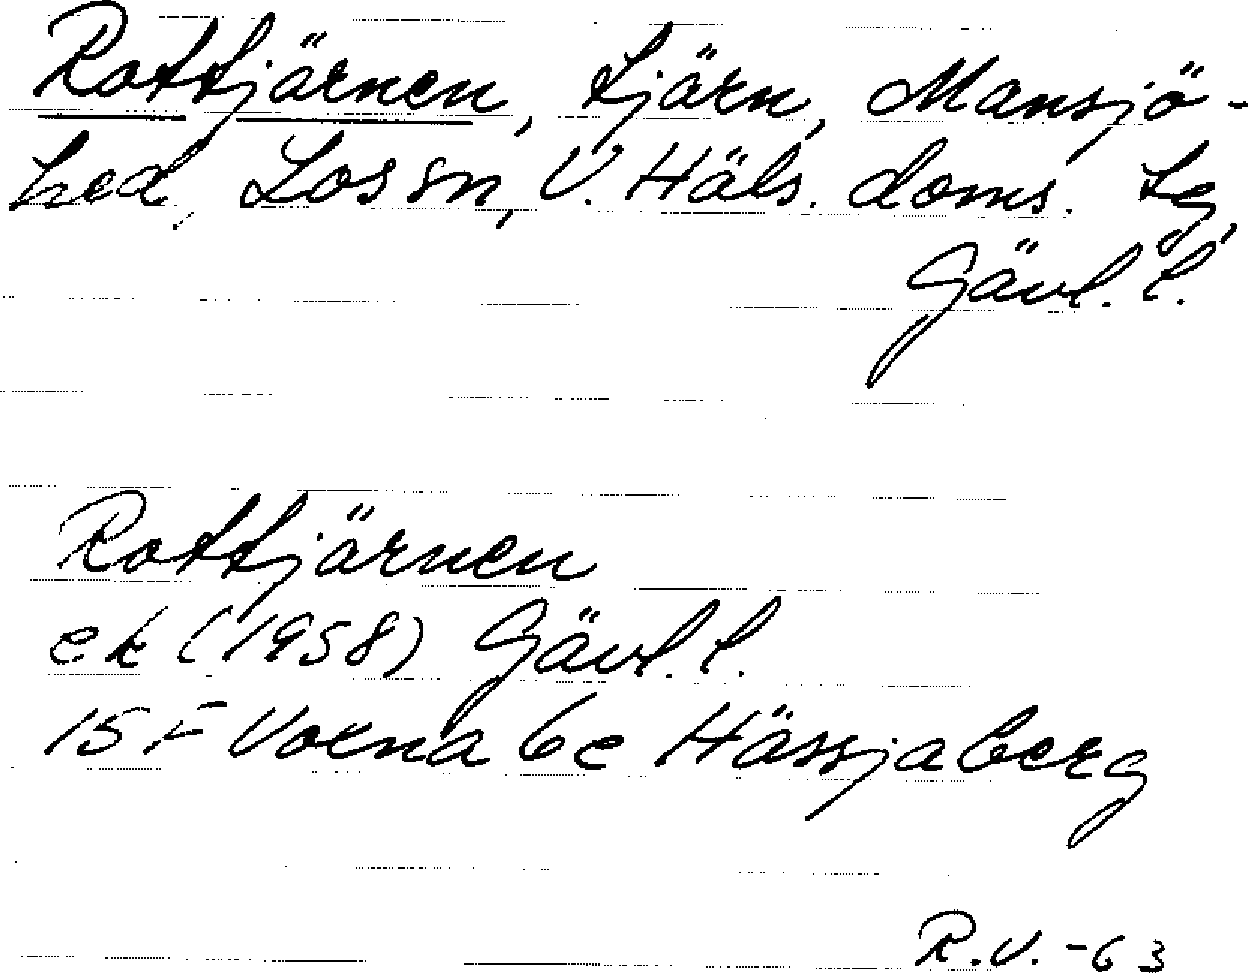 Rottjärnen, tjärn, Mansjö-
hed, Los sn, V. Häls. doms. tg,
Gävl. l.
Rottjärnen
ek (1958) Gävl. l.
15 F Voxna 6e Hässjaberg
R.V. -63